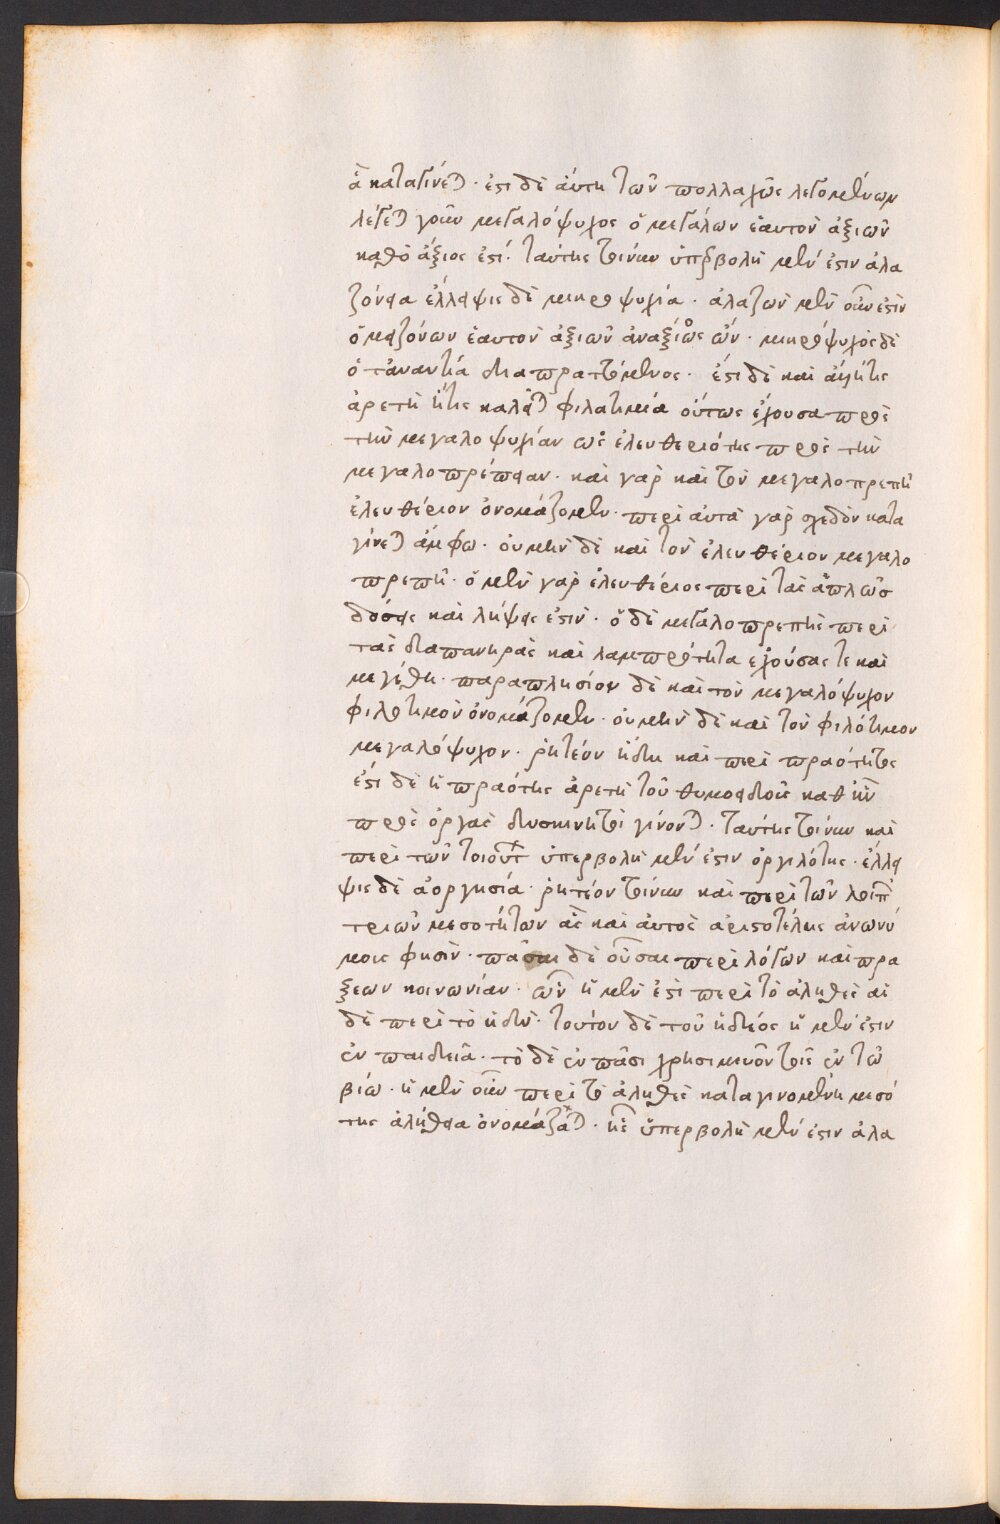 ἃ καταγίνεται. ἔστι δὲ αὕτη τῶν πολλαχῶς λεγομένων
λέγεται γοῦν μεγαλόψυχος ὁ μεγάλων ἑαυτὸν ἀξιῶν
καθὸ ἄξιος ἐστί. ταύτης τοίνυν ὑπερβολὴ μέν ἐστιν ἀλα
ζόνεια ἔλλειψις δὲ μικροψυχία. ἀλαζὼν μὲν οὖν ἐστὶν
ὁ μειζόνων ἑαυτὸν ἀξιῶν ἀναξίως ὤν. μικρόψυχος δὲ
ὁ τἀναντία διαπραττόμενος. ἔστι δὲ καὶ ἄλλη τις
ἀρετὴ ἥτις καλεῖται φιλοτιμία οὕτως ἔχουσα πρὸς
τὴν μεγαλοψυχίαν ὡς ἐλευθεριότης πρὸς τὴν
μεγαλοπρέπειαν. καὶ γὰρ καὶ τὸν μεγαλοπρεπῆ
ἐλευθέριον ὀνομάζομεν. περὶ αὐτὰ γὰρ σχεδὸν κατα
γίνεται ἄμφω. οὐ μὴν δὲ καὶ τὸν ἐλευθέριον μεγαλο
πρεπῆ. ὁ μὲν γὰρ ἐλευθέριος περὶ τὰς ἁπλῶς
δόσεις καὶ λήψεις ἐστίν. ὁ δὲ μεγαλοπρεπὴς περὶ
τὰς δαπανηρὰς καὶ λαμπρότητα ἐχούσας τε καὶ
μεγέθη. παραπλησίον δὲ καὶ τὸν μεγαλόψυχον
φιλότιμον ὀνομάζομεν. οὐ μὴν δὲ καὶ τὸν φιλότιμον
μεγαλόψυχον. ῥητέον ἤδη καὶ περὶ πραότητος
ἔστι δὲ ἡ πραότης ἀρετὴ τοῦ θυμοειδοῦς καθ ἣν
πρὸς ὀργὰς δυσκίνητοι γίνονται. ταύτης τοίνυν καὶ
περὶ τῶν τοιούτ ὑπερβολὴ μέν ἐστιν ὀργιλότης. ἔλλει
ψις δὲ ἀοργησία. ῥητέον τοίνυν καὶ περὶ τῶν λοιπ
τριῶν μεσοτήτων ἃς καὶ αὐτὸς ἀριστοτέλης ἀνωνύ
μοις φησίν. πᾶσαι δὲ οὖσαι περὶ λόγων καὶ πρα
ξεων κοινωνίαν. ὧν ἡ μὲν ἐστὶ περὶ τὸ ἀληθὲς αἱ
δὲ περὶ τὸ ἡδύ. τούτου δὲ τοῦ ἡδέος ἡ μὲν ἐστιν
ἐν παιδειᾶ. τὸ δὲ ἐν πᾶσι χρησιμευόντοις ἐν τῶ
βίω. ἡ μὲν οὖν περὶ τὸ ἀληθὲς καταγινομένη μεσό
της ἀλήθεια ὀνομάζεται. ἧς ὑπερβολὴ μέν ἐστιν ἀλα